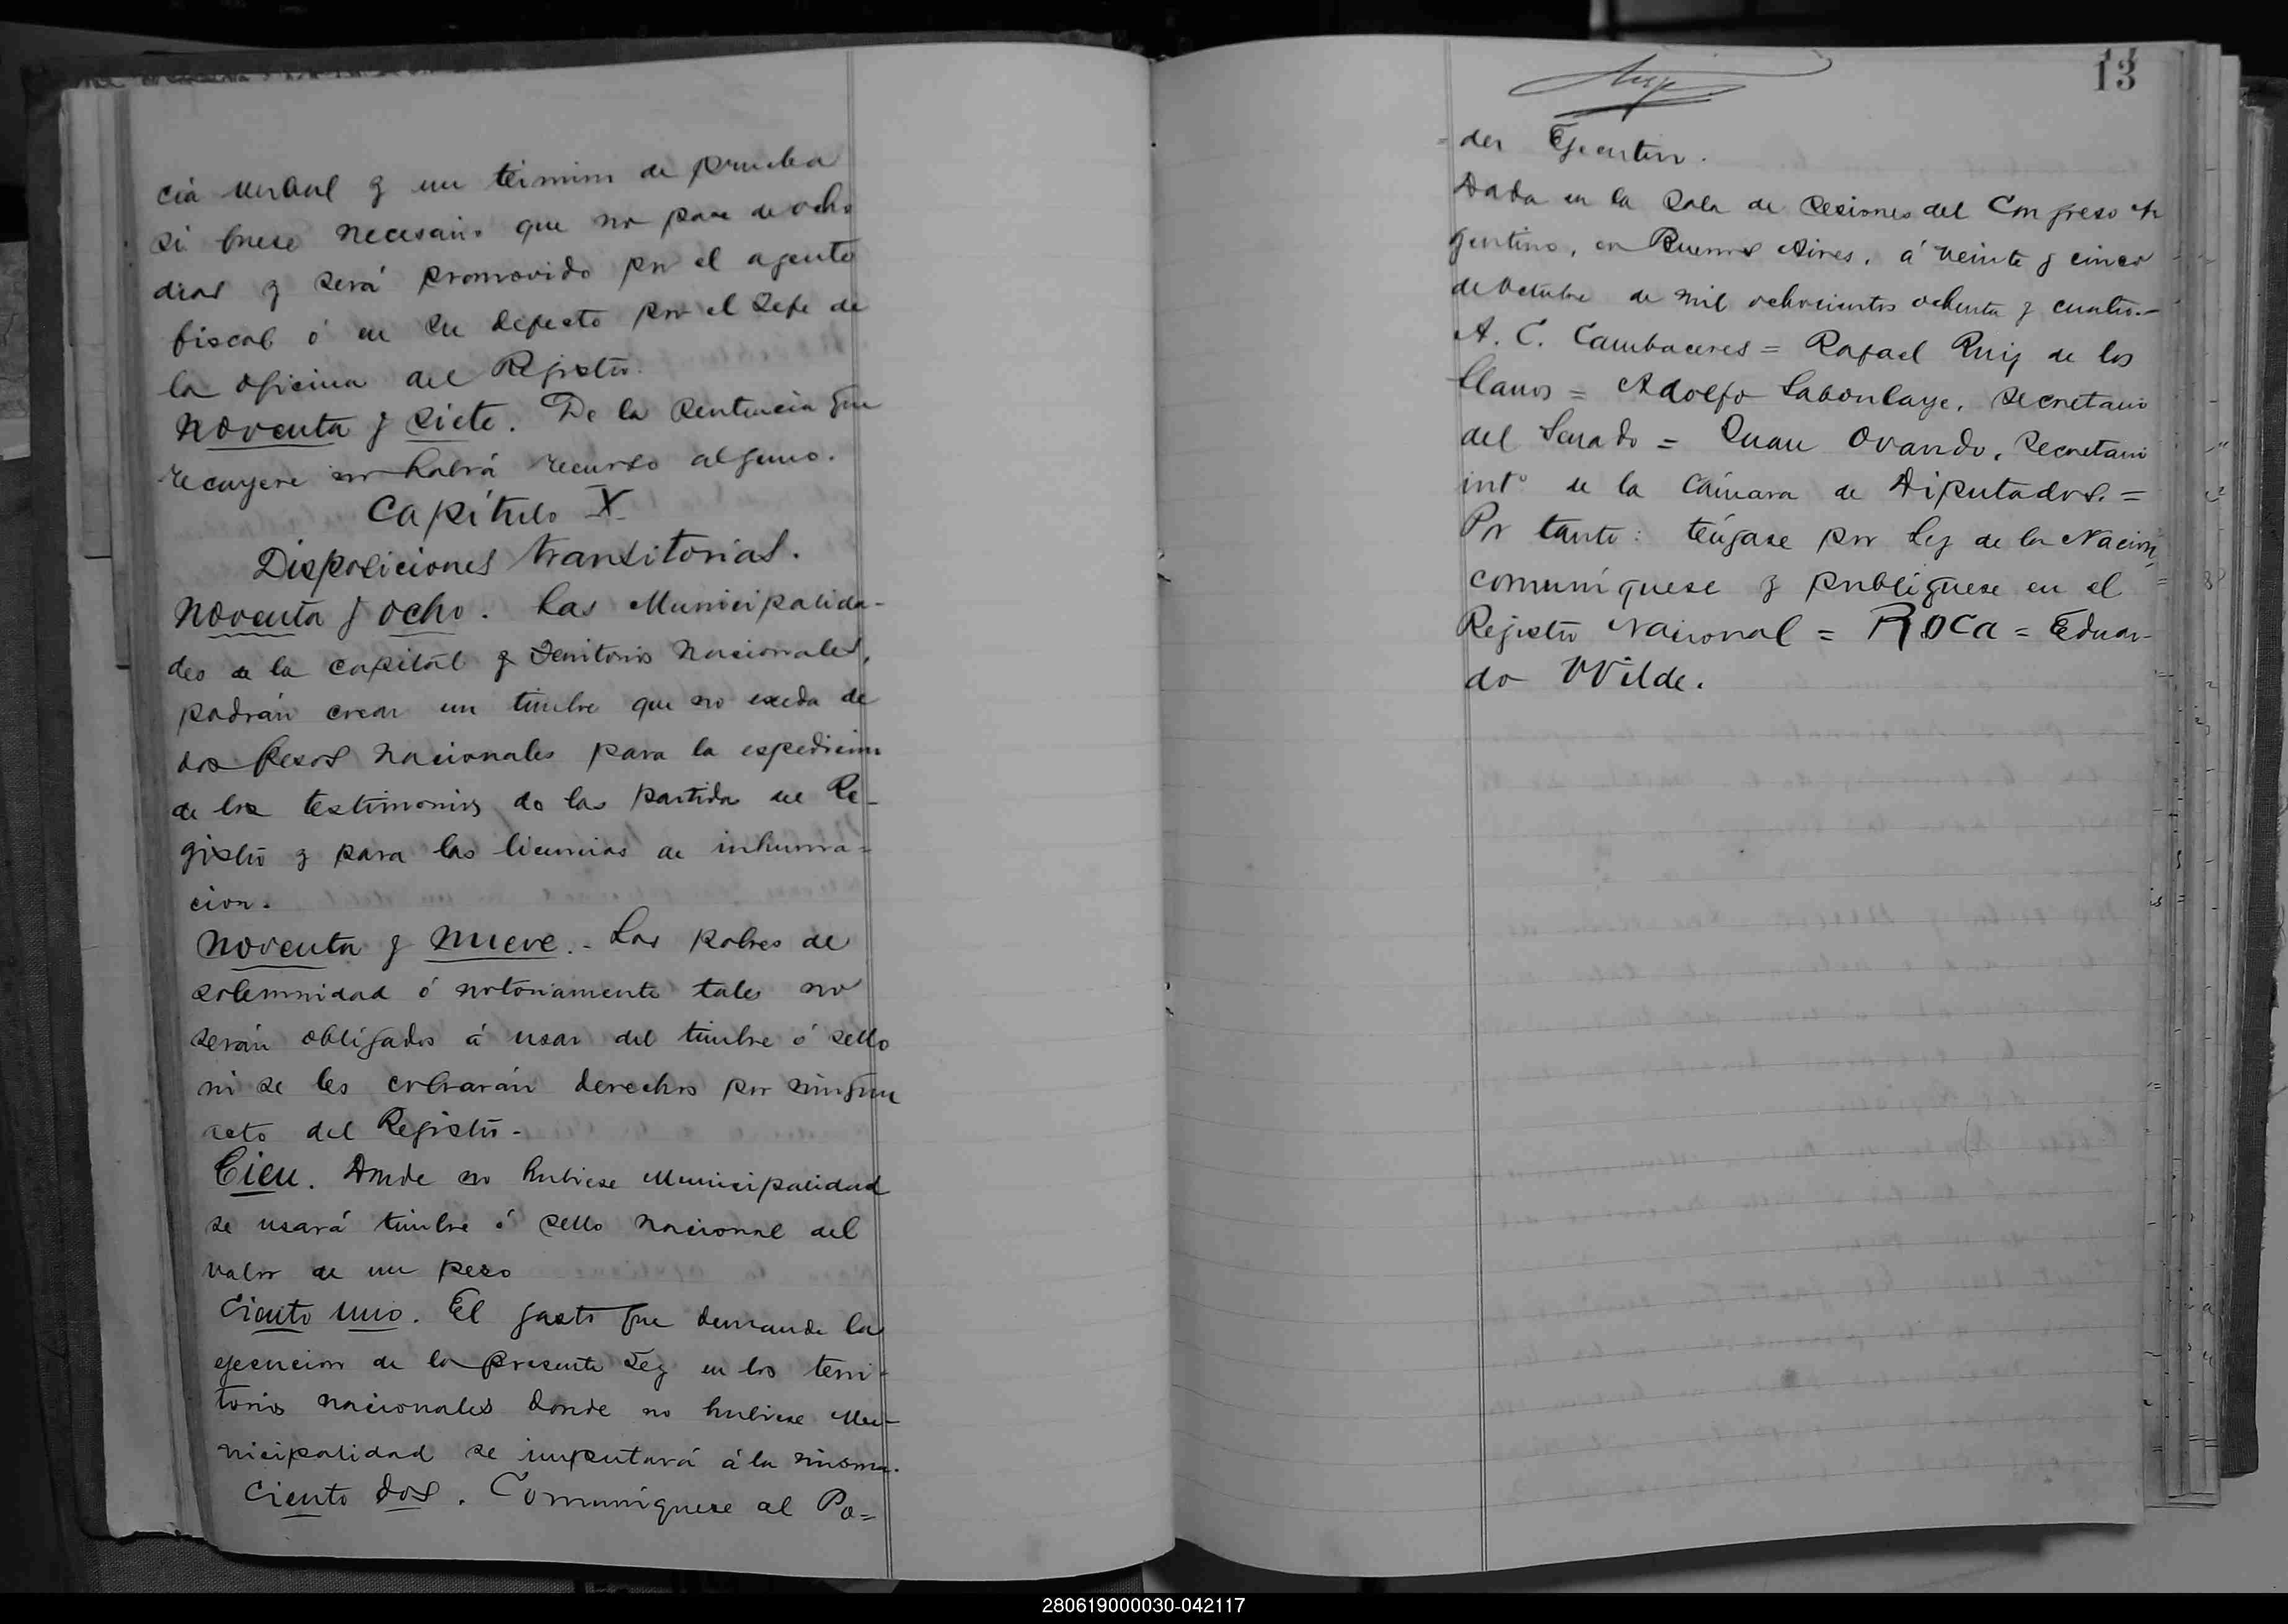 cia verbal y un término de prueba
si fuese necesario que no pase de ocho
dias y será promovido por el agente
fiscal ó en su defecto por el Jefe de
la oficina del Registro.
Noventa y siete. De la sentencia que
recayere no habrá recurso alguno.
Capítulo X
Disposiciones transitorias.
Noventa y ocho. Las Municipalida-
des de la capital y Territorios Nacionales,
podrán crear un timbre que no exceda de
dos Pesos Nacionales para la espedicion
de los testimonios de las partidas del Re-
gistro y para las licencias de inhuma-
cion.
Noventa y nueve.- Los pobres de
solemnidad ó notoriamente tales no
serán obligados á usar del timbre ó sello
ni se les cobrarán derechos por ningun
acto del Registro-
Cien. Donde no hubiese Municipalidad
se usará timbre ó sello nacional del
valor de un peso
Ciento uno. El gasto que demande la
ejecucion de la presente Ley en los terri-
torios nacionales donde no hubiese Mu-
nicipalidad se imputará á la misma.
Ciento dos. Comuníquese al Po=
13
der Ejecutivo.
Dada en la Sala de Sesiones del Congreso Ar
gentino, en Buenos Aires, á veinte y cinco
de Octubre de mil ochocientos ochenta y cuatro.-
A. C. Cambaceres = Rafael Ruiz de los
Llanos = Adolfo Labonlaye, Secretario
del Senado = Juan Ovando, Secretario
int° de la Cámara de Diputados. =
Por tanto: téngase por Ley de la Nacion,
comuníquese y publíquese en el
Registro Nacional = ROCA = Eduar-
do Wilde.
280619000030-042117